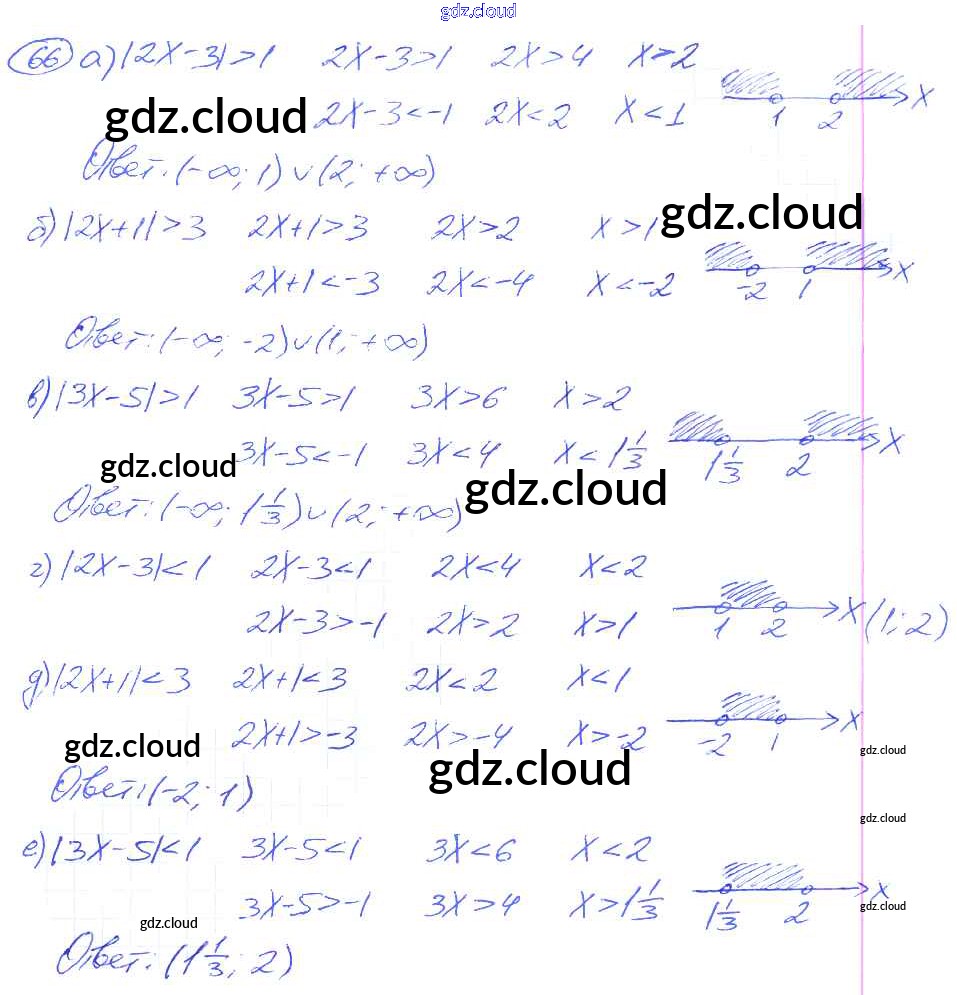 gdz.cloud
66 а) |2x-3|>1 2x-3>1 2x>4 x>2
gdz.cloud 2x-3<-1 2x<2 x<1 1 2 x
Ответ: (-∞; 1) ∪ (2; +∞)
б) |2x+1|>3 2x+1>3 2x>2 x>1 gdz.cloud
2x+1<-3 2x<-4 x<-2 -2 1 x
Ответ: (-∞; -2) ∪ (1; +∞)
в) |3x-5|>1 3x-5>1 3x>6 x>2
gdz.cloud 3x-5<-1 3x<4 x<1 1/3 1 1/3 2 x
Ответ: (-∞; 1 1/3) ∪ (2; +∞) gdz.cloud
г) |2x-3|<1 2x-3<1 2x<4 x<2
2x-3>-1 2x>2 x>1 1 2 x (1; 2)
д) |2x+1|<3 2x+1<3 2x<2 x<1
gdz.cloud 2x+1>-3 2x>-4 x>-2 -2 1 x gdz.cloud
Ответ: (-2; 1) gdz.cloud
gdz.cloud
е) |3x-5|<1 3x-5<1 3x<6 x<2
gdz.cloud 3x-5>-1 3x>4 x>1 1/3 1 1/3 2 x gdz.cloud
Ответ: (1 1/3; 2)